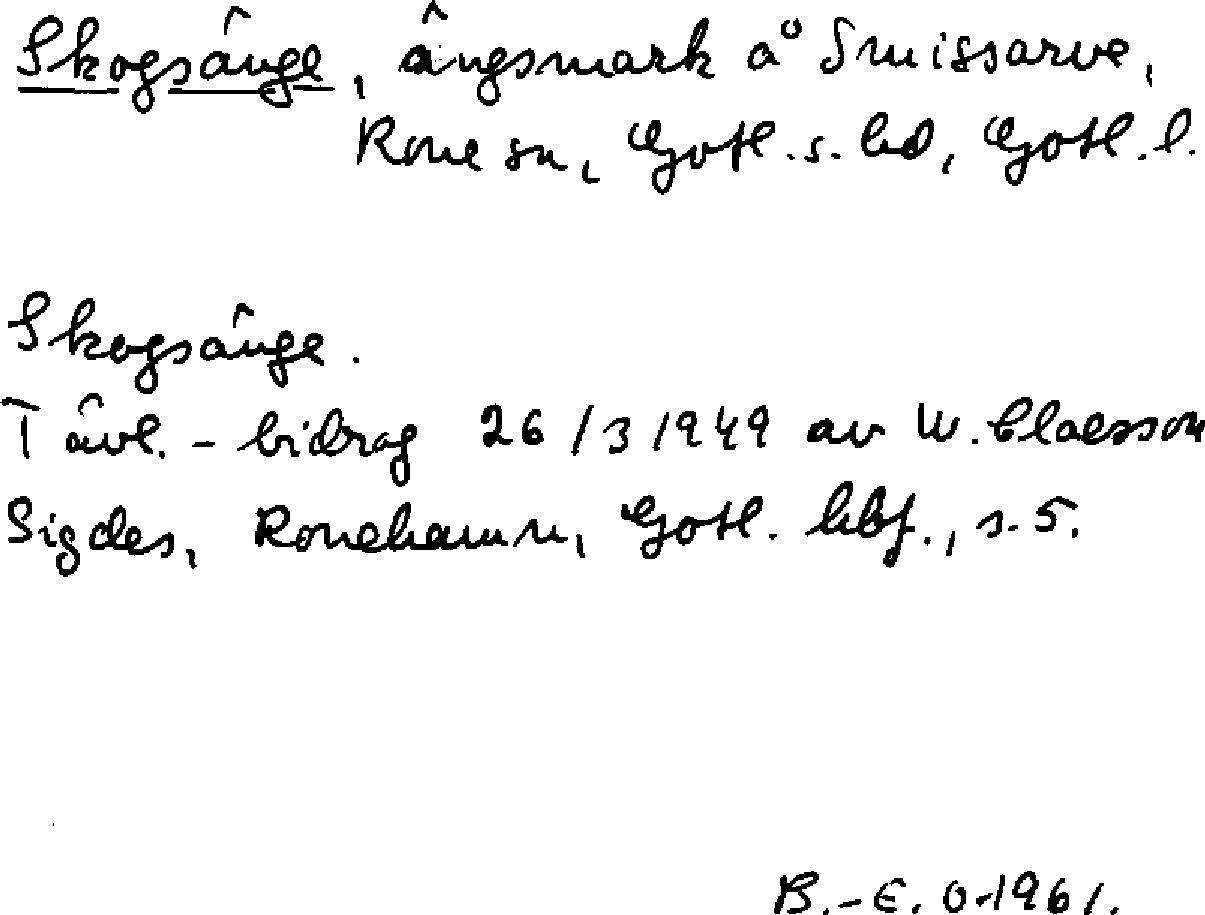 Skogsänge, ängsmark å Smissarve,
Rone sn, Gotl. s. hd, Gotl. l.
Skogsänge.
Tävl.-bidrag 26/3 1949 av W. Claesson
Sigdes, Ronehamn, Gotl. hbf., s. 5.
B.-E. O-1961.